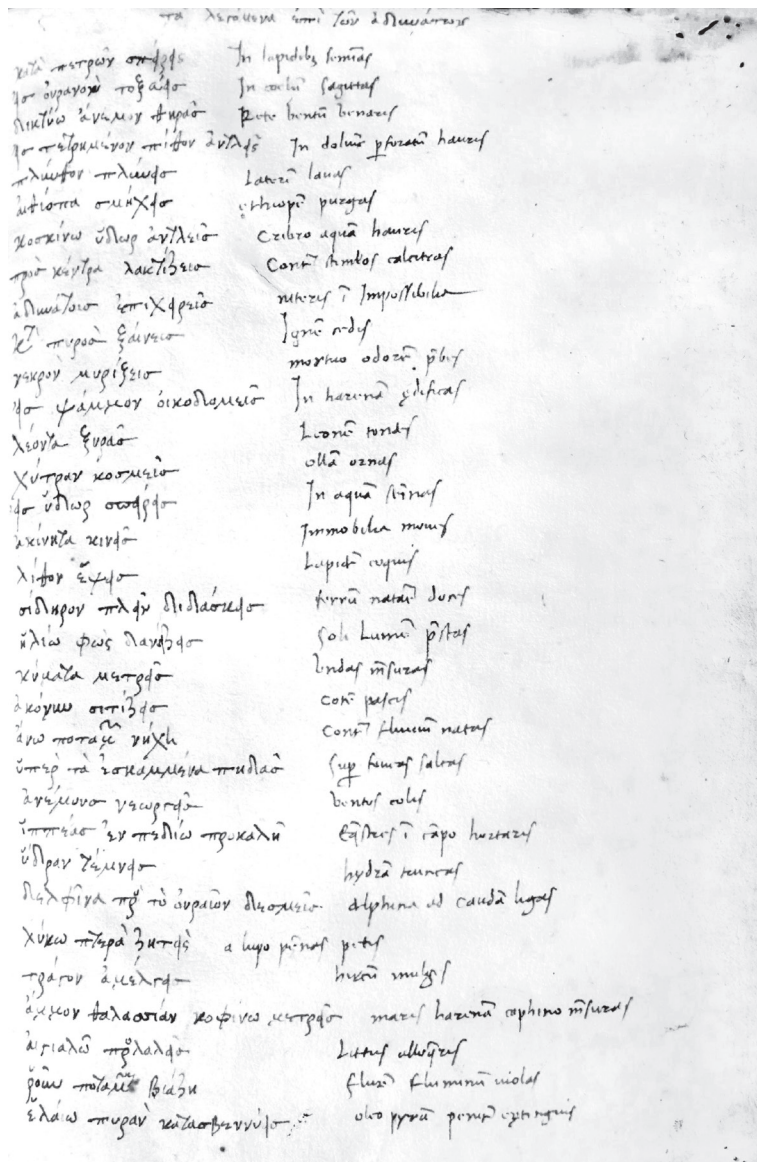 τὰ λεγόμενα ἐπὶ τῶν ἀδυνάτων
κατὰ πετρῶν σπείρεις In lapidibꝫ seminas
εἰς οὐρανὸν τοξεύεις In coelum sagittas
δικτύω ἄνεμον θηρᾶσ Rete bentũ benaris
εἰς πετρημένον πίθον ἀντλεῖσ In dolium ꝑforatũ hauris
πλίνθον πλύνεισ Laterẽ lauas
αἰθίοπα σμήχεισ ęthiopẽ purgas
κοσκίνω ὕδωρ ἀντλεῖσ Cribro aquã hauris
πρὸσ κέντρα λακτίζεισ Contͣ stimłos calcitras
ἀδυνάτοισ ἐπιχειρεῖσ niteris ĩ Impossibilia
πυροσ ξαίνεισ Ignẽ cedis
νεκρὸν μυρίζεισ mortuo odorẽ p̃bes
εἰσ ψάμμον οἰκοδομεῖσ In harenã ędificas
λέοντα ξυρᾶσ Leonẽ tondes
χύτραν κοσμεῖσ ollã ornas
εἰσ ὕδωρ σπείρεισ In aquã sẽinas
ἀκίνητα κινεῖσ Immobilia moues
λίθον ἕψεισ Lapidẽ coquis
σίδηρον πλεῖν διδάσκεισ ferrũ natarẽ doces
ἡλίω φῶς δανείζεισ Soli Lumẽ p̃stas
κύματα μετρεῖσ bndas m̃suras
ἀκόνην σιτίζεισ cotẽ pascis
ἄνω ποταμῶν νήχη Contͣ fluuium natas
ὕπερ τὰ ἐσκαμμένα πηδᾶσ Suꝑ foueas saltas
ἀνέμουσ γεωργεῖσ bentos colis
ἱππέασ ἐν πεδίω προκαλῆ Eq̃stres ĩ cãpo hortaris
ὕδραν τέμνεισ hydrã truncas
δελφῖνα πρὸσ τὸ οὐραῖον δεσμεῖσ dlphina ad caudã ligas
λύκω πτερὰ ζητεῖσ a lupo pẽnas petis
τράγον ἀμέλγεισ hircũ mulges
ἄμμον θαλασσίαν κοφίνω μετρεῖσ maris harenã cophino m̃suras
αἰγιαλῶ προσλαλεῖσ Littus alloq̃ris
ῥοὴν ποταμῶν βιάζη fluxũ fluminũ uiolas
ἐλαίω πυρὰν κατασβεννύεισ oleo pyrã penitꝰ extinguis